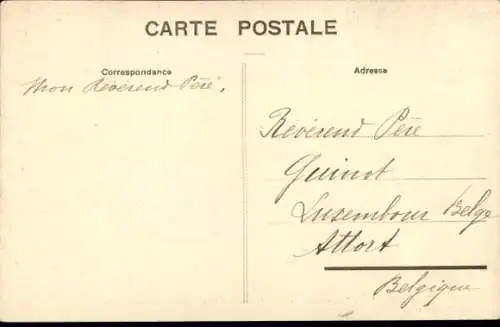 CARTE POSTALE
Correspondance
Mon Révérend Père,
Adresse
Révérend Père
Guinot
Luxembour Belge
Attort
Belgique